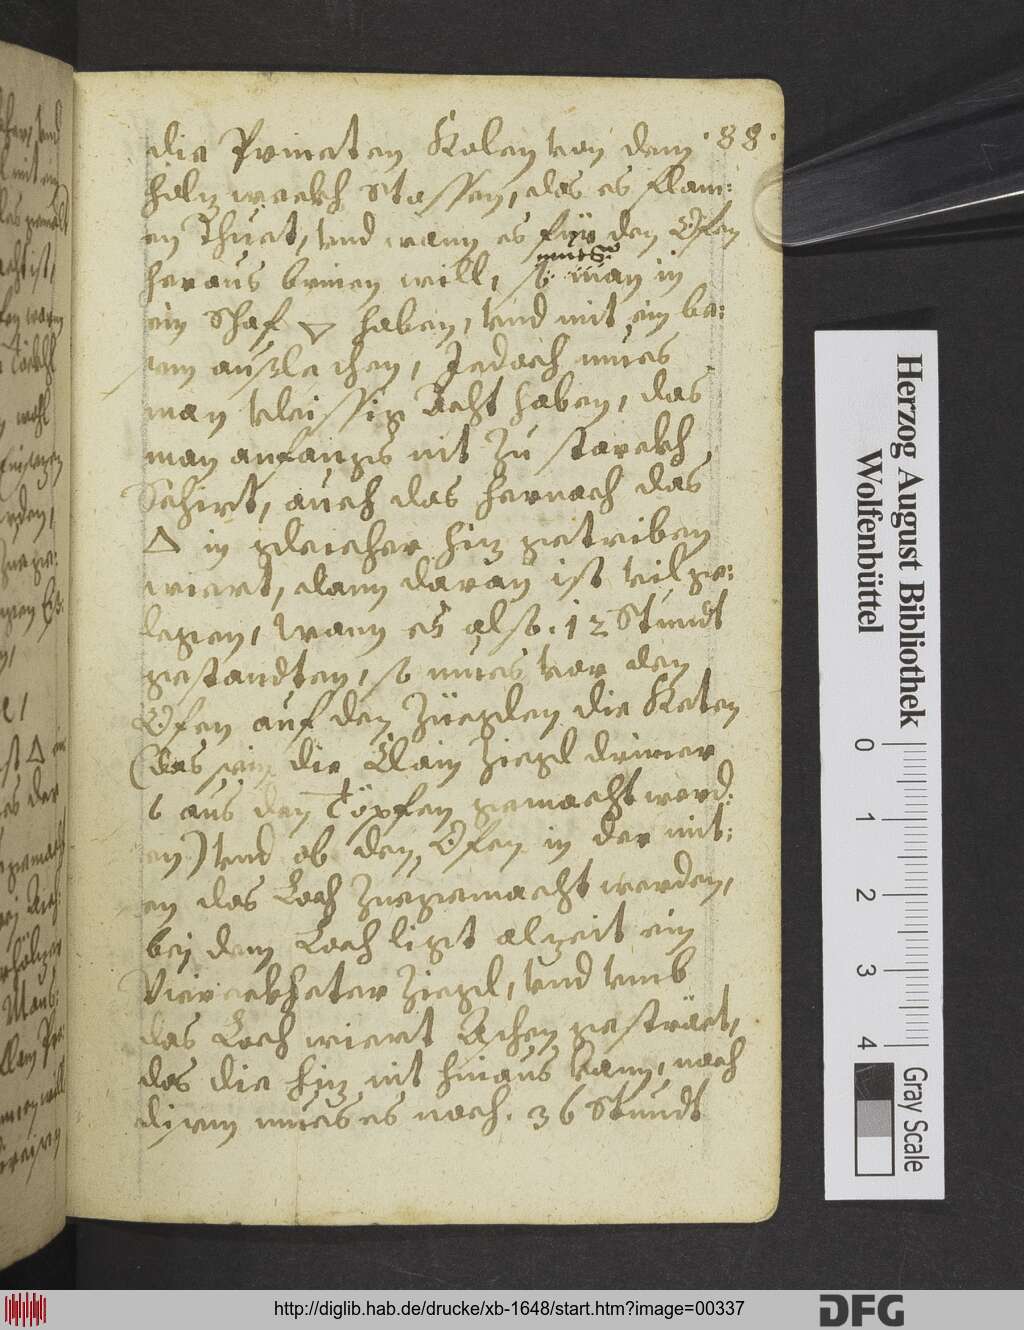 ·88·
die Prineten Kolen von dem
holz weckh stossen, das es flam:
en Thuet, vnd wann es für den Ofen
heraus brinen will, so mues man in
ein Schaf ▽ haben, vnd mit ein be:
sem außleschen, Jedoch mues
man vleissig Acht haben, das
man anfangs nit zu starckh
Schirt, auch das hernach das
△ in gleicher hiz getriben
wiert, dann daran ist vil ge:
legen, wann es also ·12 Stundt
gestandten, so mues vor den
Ofen auf den Züeglen die Keten
(das sein die Klain Ziegl drimer
so aus den Töpfen gemacht werd:
en) vnd ob den Ofen in der mit:
en das Loch zuegemacht werden,
bey dem Loch ligt alzeit ein
Viereckheter Ziegl, vnd vmb
das Loch wiert Aschen gesträet,
das die hiz nit hinaus kann, nach
disem mues es noch ·36 Stundt
Herzog August Bibliothek
Wolfenbüttel
0 1 2 3 4
Gray Scale
http://diglib.hab.de/drucke/xb-1648/start.htm?image=00337
DFG